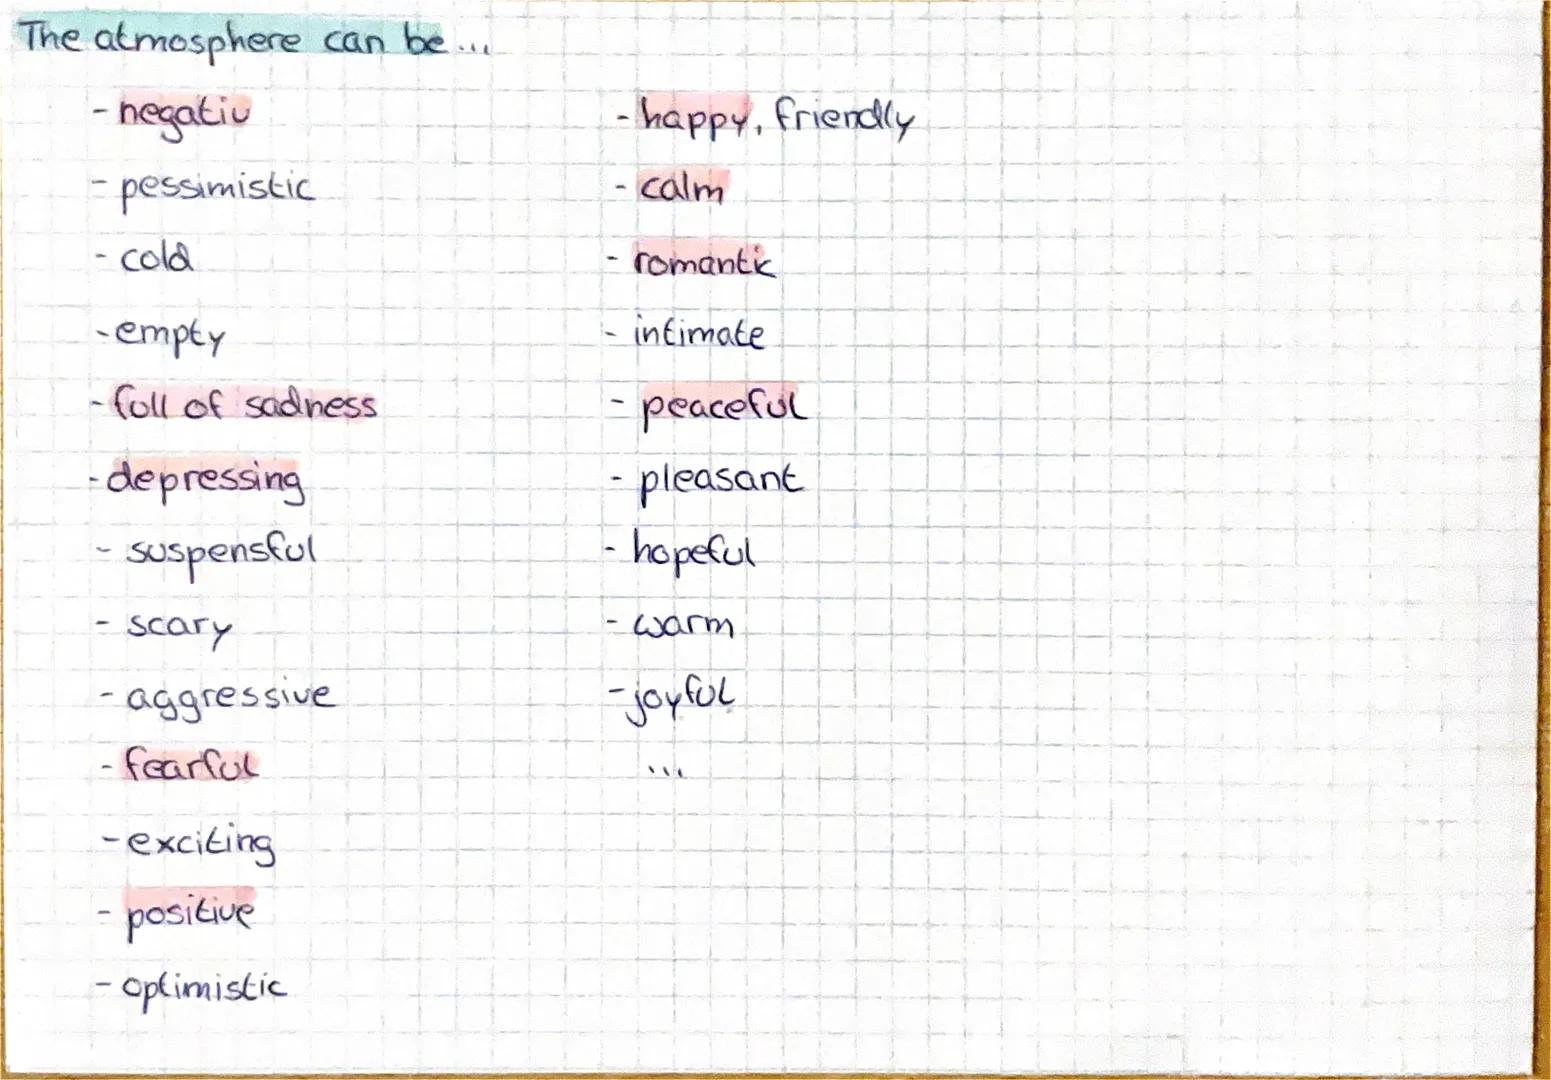 The atmosphere can be...
- negativ
- pessimistic
- cold
- empty
- full of sadness
- depressing
- suspensful
- scary
- aggressive
- fearful
- exciting
- positive
- optimistic
- happy, friendly
- calm
- romantic
- intimate
- peaceful
- pleasant
- hopeful
- warm
- joyful
...